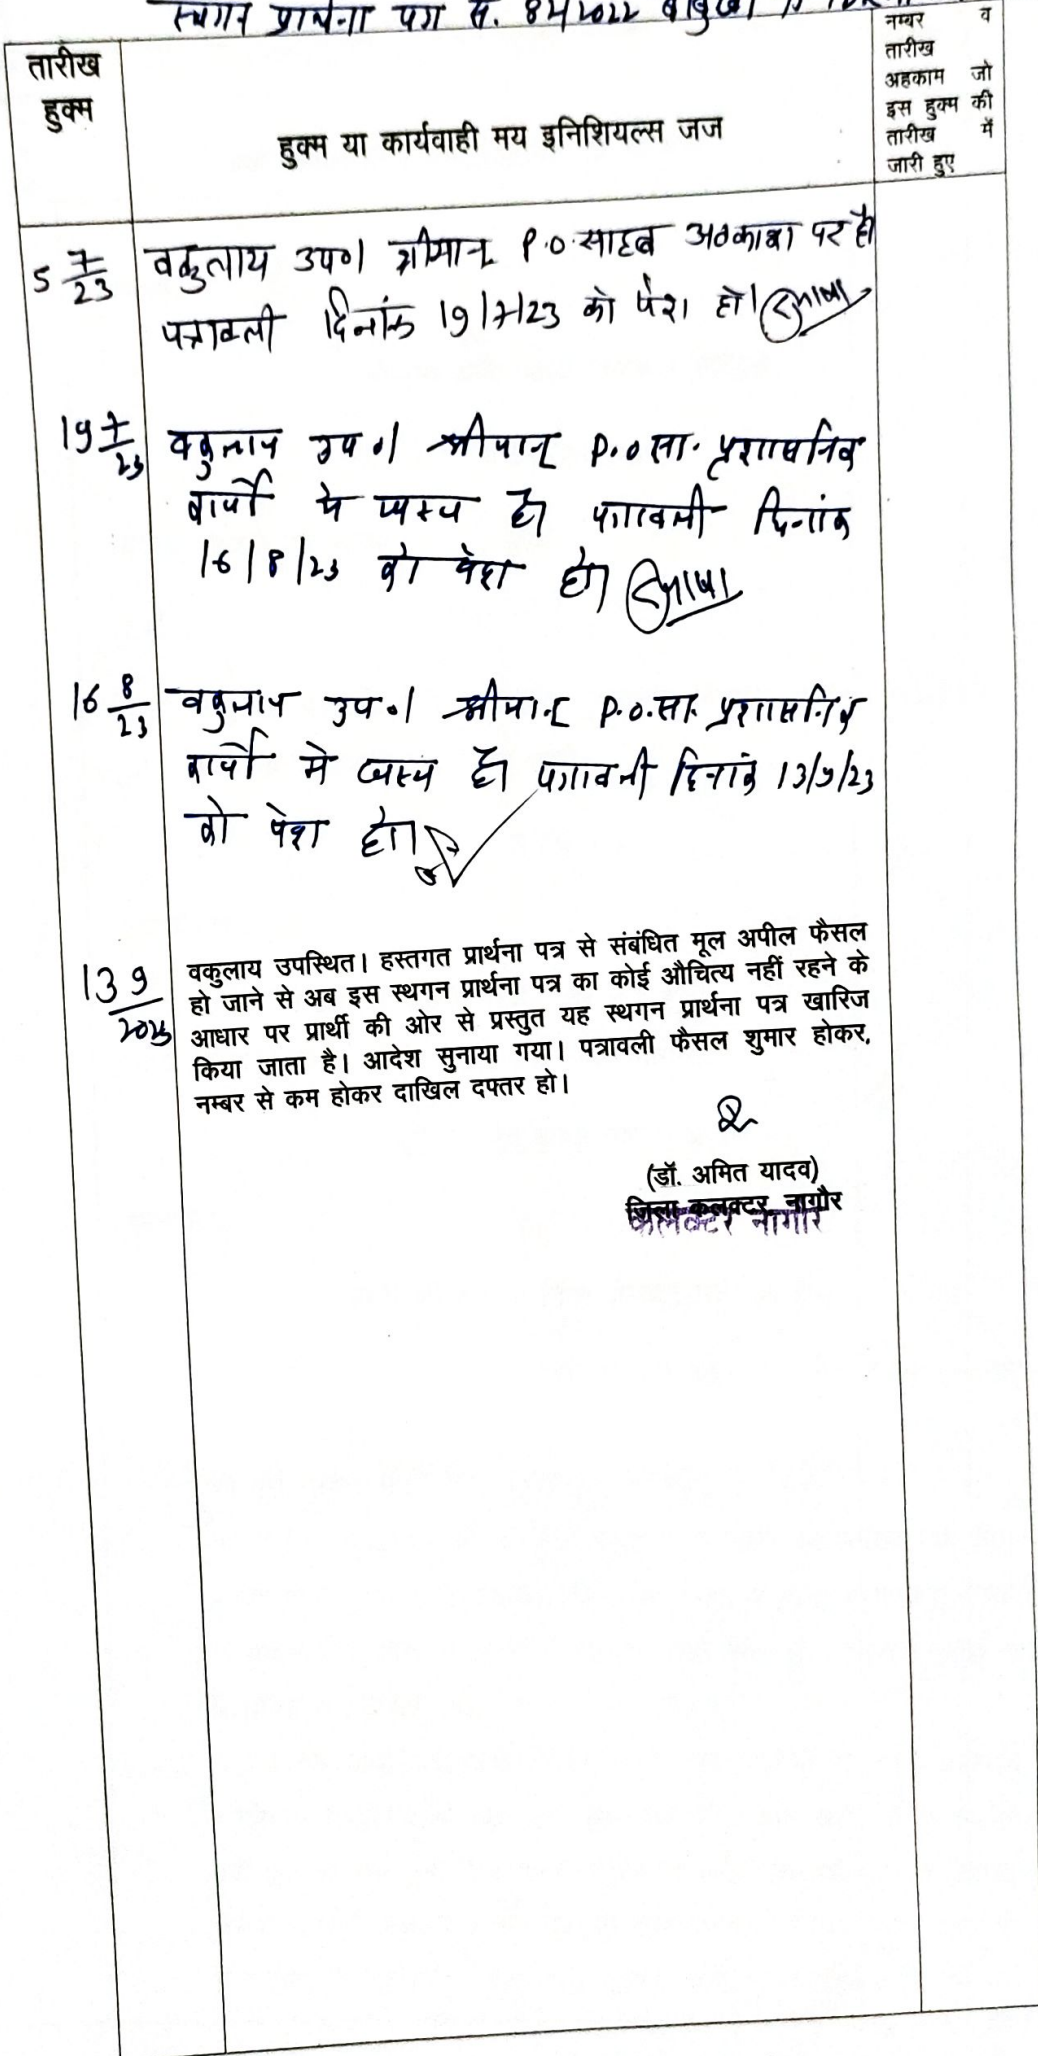 स्थगन प्रार्थना पत्र सं. 84/2022
तारीख
हुक्म
हुक्म या कार्यवाही मय इनिशियल्स जज
नम्बर व
तारीख
अहकाम जो
इस हुक्म की
तारीख में
जारी हुए
5 7/23 वकुलाय उप०। श्रीमान् P.O. साहब अवकाश पर है।
पत्रावली दिनांक 19/7/23 को पेश हो।
19 7/23 वकुलाय उप०। श्रीमान् P.O. सा. प्रशासनिक
कार्यो मे व्यस्त है। पत्रावली दिनांक
16/8/23 को पेश हो।
16 8/23 वकुलाय उप०। श्रीमान् P.O. सा. प्रशासनिक
कार्यो मे व्यस्त है। पत्रावली दिनांक 13/9/23
को पेश हो।
13 9/2023 वकुलाय उपस्थित। हस्तगत प्रार्थना पत्र से संबंधित मूल अपील फैसल
हो जाने से अब इस स्थगन प्रार्थना पत्र का कोई औचित्य नहीं रहने के
आधार पर प्रार्थी की ओर से प्रस्तुत यह स्थगन प्रार्थना पत्र खारिज
किया जाता है। आदेश सुनाया गया। पत्रावली फैसल शुमार होकर,
नम्बर से कम होकर दाखिल दफ्तर हो।
(डॉ. अमित यादव)
जिला कलक्टर, नागौर
कलक्टर नागौर